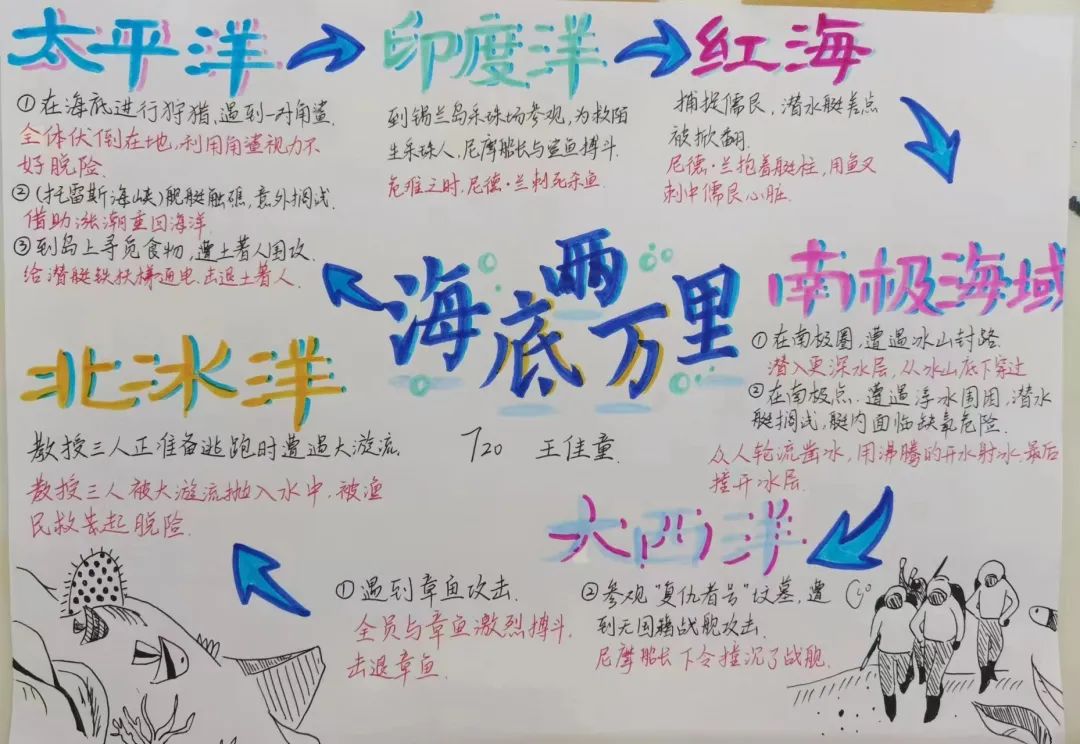 太平洋
①在海底进行狩猎,遇到一对角鲨.
全体伏倒在地,利用角鲨视力不
好脱险.
②(托雷斯海峡)舰艇触礁,意外搁浅.
借助涨潮重回海洋.
③到岛上寻觅食物,遭土著人围攻.
给潜艇铁扶梯通电,击退土著人.
印度洋
到锡兰岛采珠场参观,为救陌
生采珠人,尼摩船长与鲨鱼搏斗.
危难之时,尼德·兰刺死杀鱼.
红海
捕捉儒艮,潜水艇差点
被掀翻.
尼德·兰抱着艇柱,用鱼叉
刺中儒艮心脏.
海底两万里
南极海域
①在南极圈,遭遇冰山封路.
潜入更深水层,从冰山底下穿过
②在南极点.遭遇浮冰围困,潜水
艇搁浅,艇内面临缺氧危险.
众人轮流凿冰,用沸腾的开水射冰.最后
撞开冰层.
北冰洋
教授三人正准备逃跑时遭遇大漩流.
教授三人被大漩流抛入水中,被渔
民救起脱险.
720 王佳童.
大西洋
①遇到章鱼攻击.
全员与章鱼激烈搏斗.
击退章鱼.
②参观"复仇者号"坟墓,遭
到无国籍战舰攻击.
尼摩船长下令撞沉了战舰.